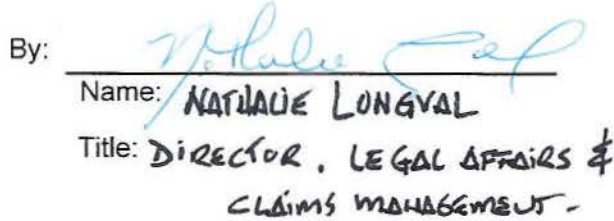 By: Nathalie
Name: NATHALIE LONGVAL
Title: DIRECTOR, LEGAL AFFAIRS &
CLAIMS MANAGEMENT.